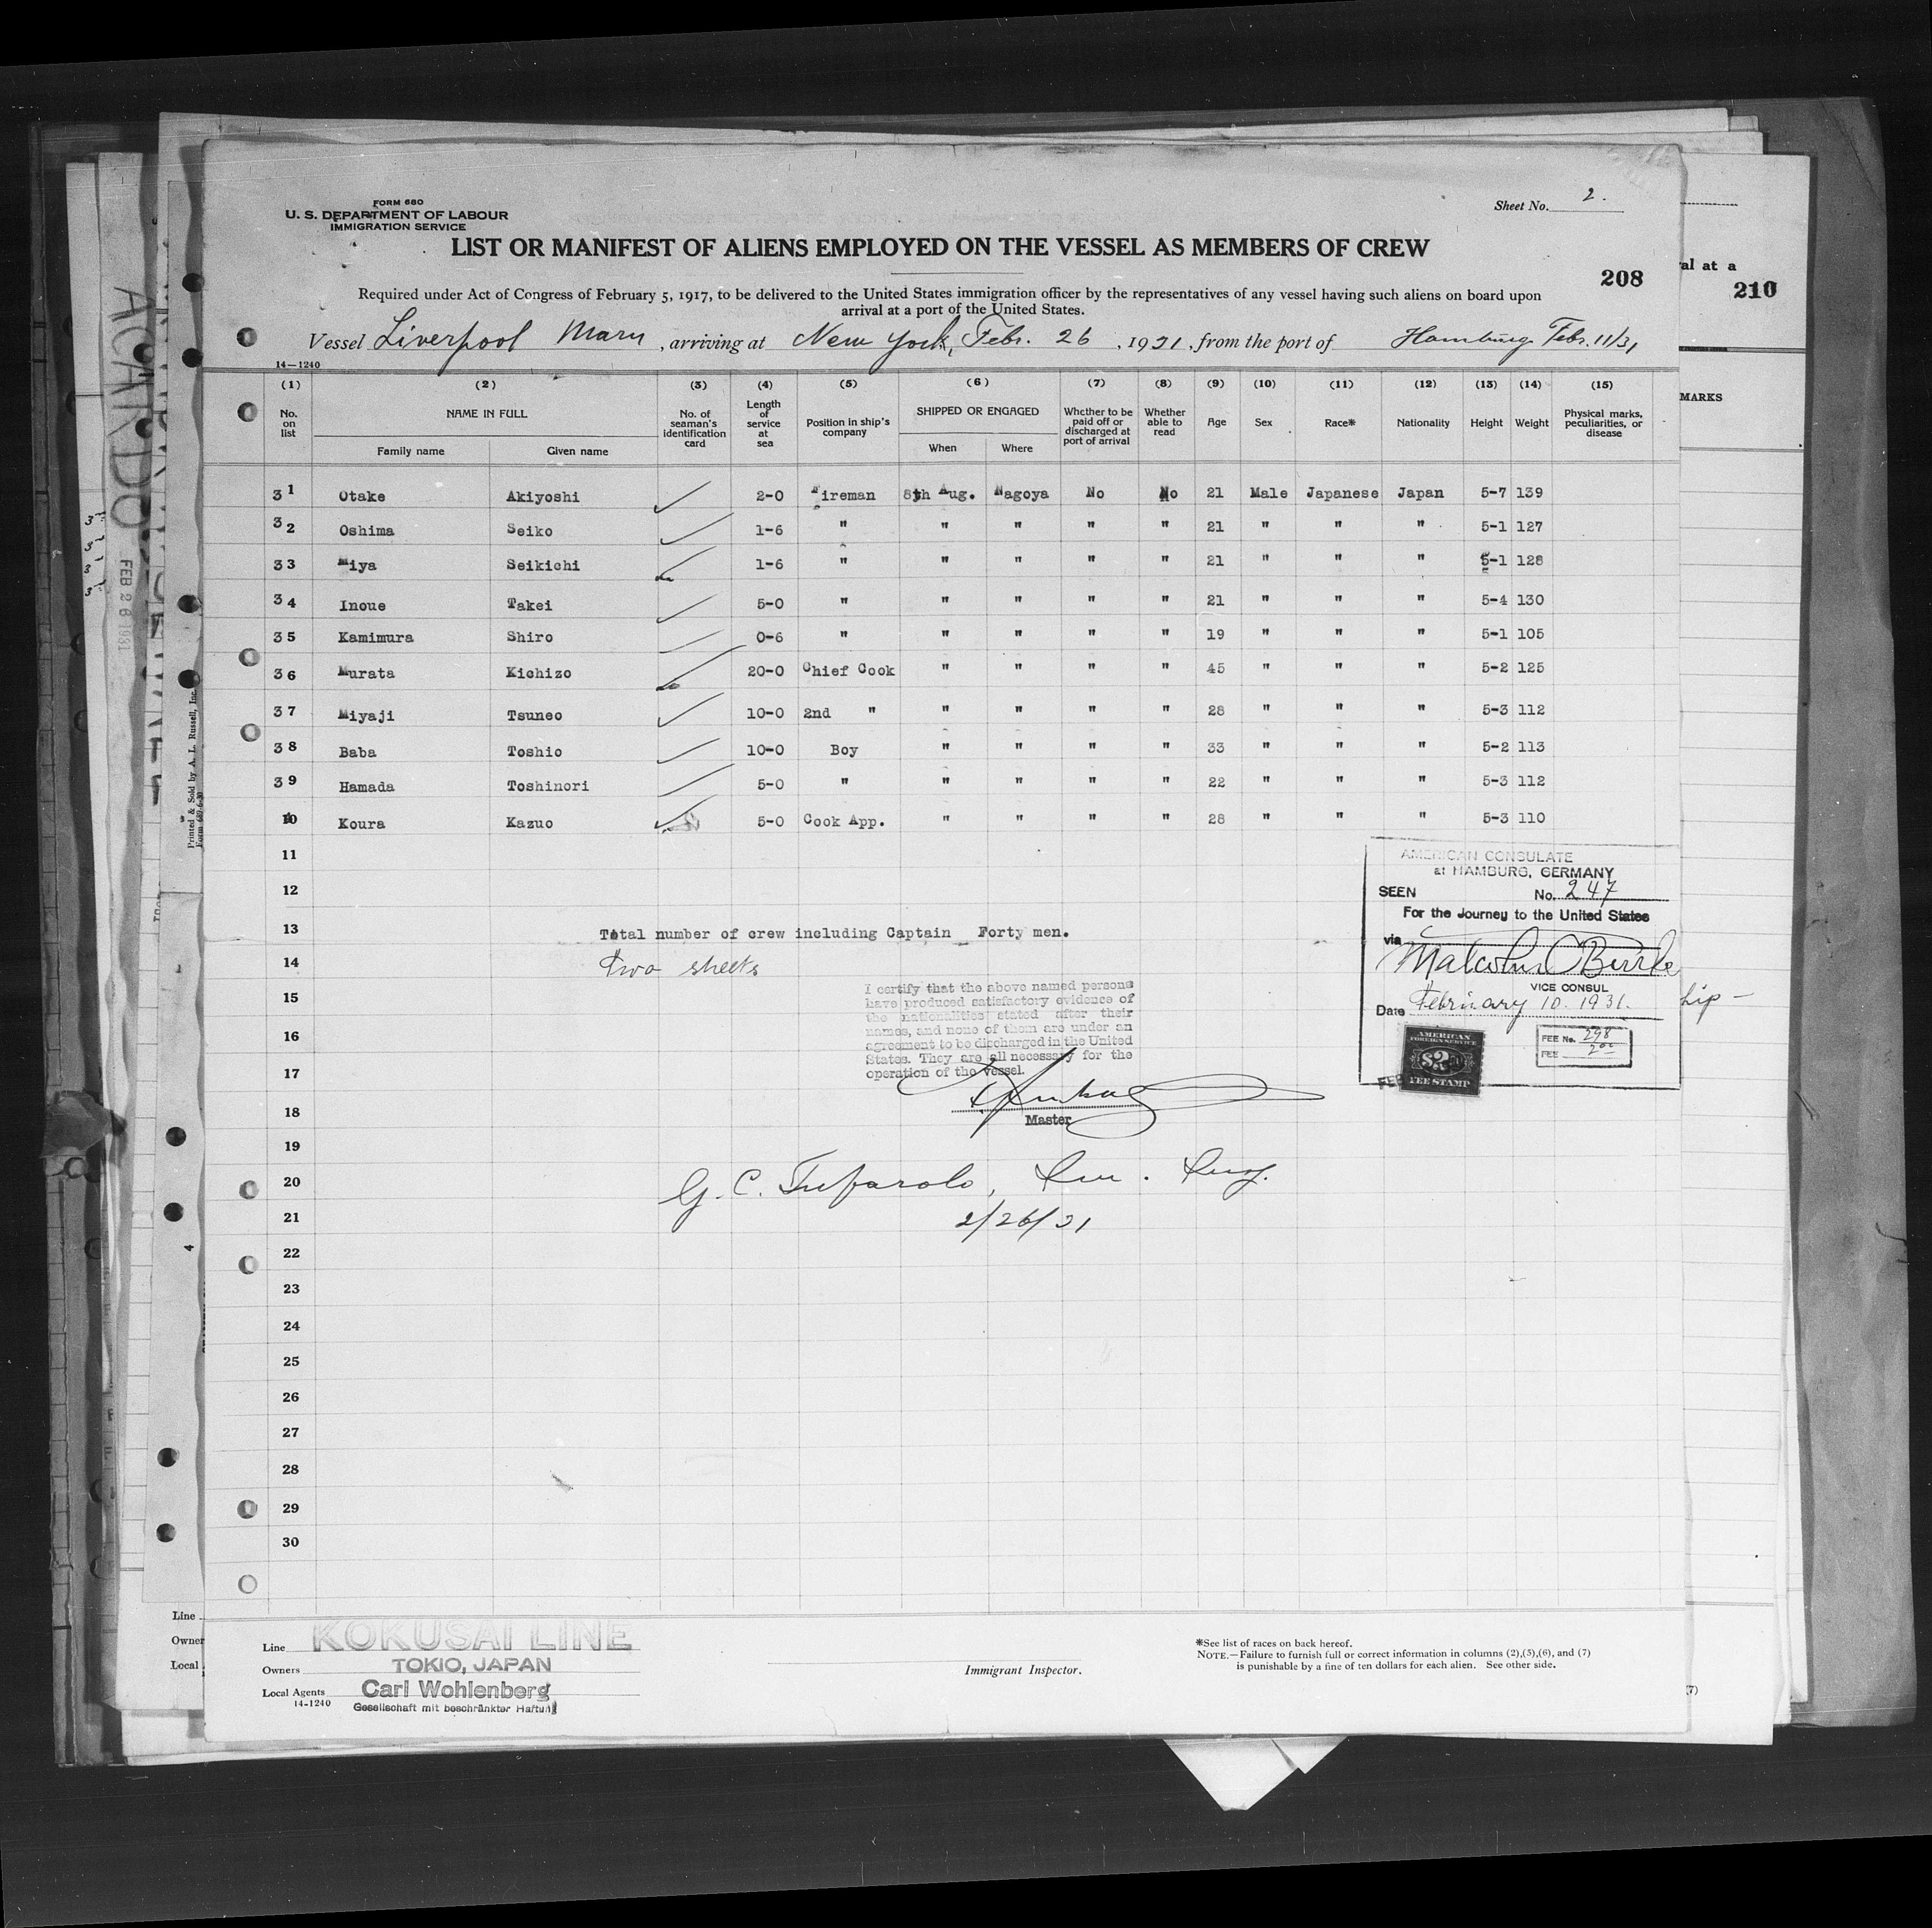 FORM 680
U. S. DEPARTMENT OF LABOUR
IMMIGRATION SERVICE
Sheet No. 2.
LIST OR MANIFEST OF ALIENS EMPLOYED ON THE VESSEL AS MEMBERS OF CREW
208
al at a
210
Required under Act of Congress of February 5, 1917, to be delivered to the United States immigration officer by the representatives of any vessel having such aliens on board upon
arrival at a port of the United States.
Vessel Liverpool Maru, arriving at New York, Febr. 26, 1931, from the port of Hamburg Febr. 11/31
14—1240
(1) (2) (3) (4) (5) (6) (7) (8) (9) (10) (11) (12) (13) (14) (15)
No. on list
NAME IN FULL
Family name
Given name
No. of seaman's identification card
Length of service at sea
Position in ship's company
SHIPPED OR ENGAGED
When
Where
Whether to be paid off or discharged at port of arrival
Whether able to read
Age
Sex
Race*
Nationality
Height
Weight
Physical marks, peculiarities, or disease
MARKS
31 Otake Akiyoshi 2-0 Fireman 8th Aug. Nagoya No No 21 Male Japanese Japan 5-7 139
32 Oshima Seiko 1-6 " " " " " 21 " " " 5-1 127
33 Miya Seikichi 1-6 " " " " " 21 " " " 5-1 128
34 Inoue Takei 5-0 " " " " " 21 " " " 5-4 130
35 Kamimura Shiro 0-6 " " " " " 19 " " " 5-1 105
36 Murata Kichizo 20-0 Chief Cook " " " " 45 " " " 5-2 125
37 Miyaji Tsuneo 10-0 2nd " " " " " 28 " " " 5-3 112
38 Baba Toshio 10-0 Boy " " " " 33 " " " 5-2 113
39 Hamada Toshinori 5-0 " " " " " 22 " " " 5-3 112
40 Koura Kazuo 5-0 Cook App. " " " " 28 " " " 5-3 110
11
12
13 Total number of crew including Captain Forty men.
14 Two sheets
15
16
17
18
19
20
21
22
23
24
25
26
27
28
29
30
AMERICAN CONSULATE
at HAMBURG, GERMANY
SEEN No. 247
For the Journey to the United States
via
VICE CONSUL
Date February 10. 1931.
hip —
AMERICAN
FOREIGN SERVICE
$2
FEE STAMP
FEE No. 298
FEE 2 00
FEB
I certify that the above named persons
have produced satisfactory evidence of
the nationalities stated after their
names, and none of them are under an
agreement to be discharged in the United
States. They are all necessary for the
operation of the vessel.
Master
2/26/31
Line KOKUSAI LINE
Owners TOKIO, JAPAN
Local Agents Carl Wohlenberg
14-1240
Gesellschaft mit beschränkter Haftung
Immigrant Inspector.
*See list of races on back hereof.
NOTE.—Failure to furnish full or correct information in columns (2),(5),(6), and (7)
is punishable by a fine of ten dollars for each alien. See other side.
(7)
Line
Owner
Local
Printed & Sold by A. L. Russell, Inc.
FEB 26 1931
4